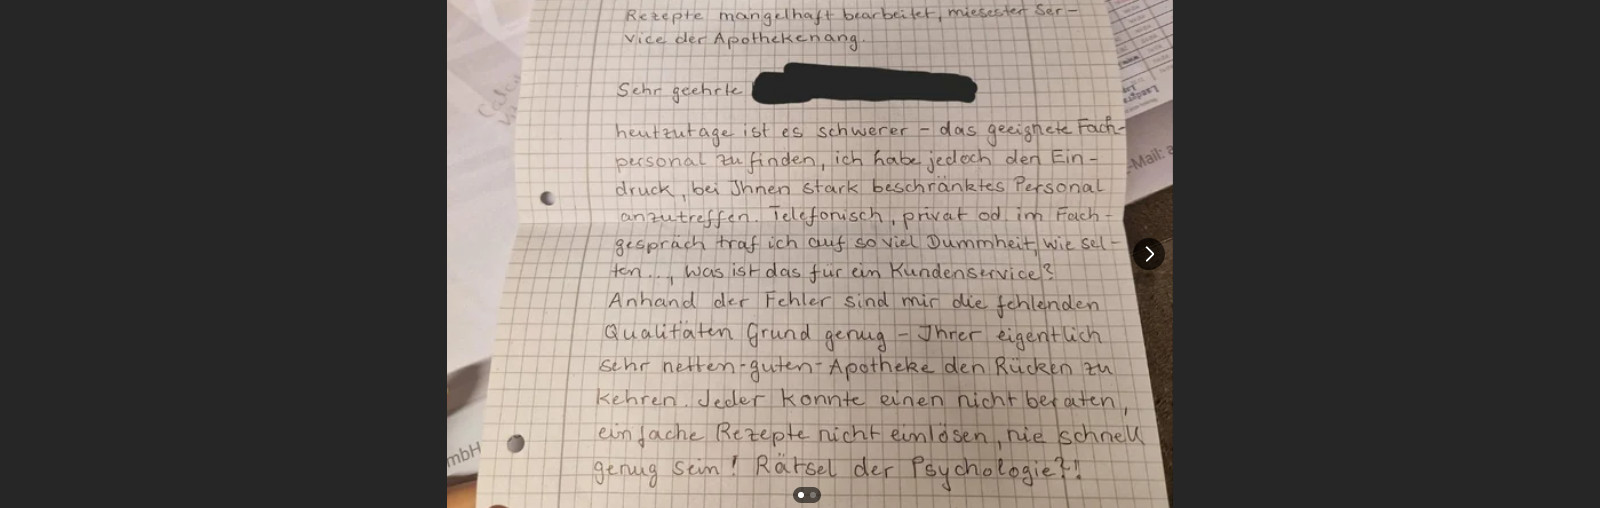 Rezepte mangelhaft bearbeitet, miesester Ser-
vice der Apothekenang.
Sehr geehrte
heutzutage ist es schwerer - das geeignete Fach-
personal zu finden, ich habe jedoch den Ein-
druck, bei Ihnen stark beschränktes Personal
anzutreffen. Telefonisch, privat od. im Fach-
gespräch traf ich auf so viel Dummheit, wie sel-
ten..., Was ist das für ein Kundenservice?
Anhand der Fehler sind mir die fehlenden
Qualitäten Grund genug - Ihrer eigentlich
sehr netten-guten-Apotheke den Rücken zu
kehren. Jeder konnte einen nicht beraten,
einfache Rezepte nicht einlösen, nie schnell
genug sein! Rätsel der Psychologie?!
-Mail:
mbH